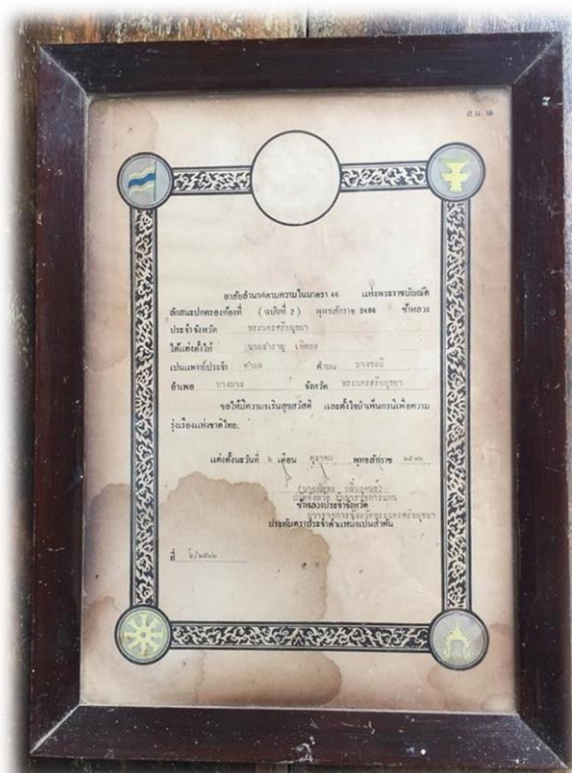 ส.น. ๒
อาสัยอำนาดตามความไนมาตรา 46 แห่งพระราชบัญญัติ
ลักสนะปกครองท้องที่ (ฉบับที่ 2) พุทธสักราช 2486 ข้าหลวง
ประจำจังหวัด พระนครศรีอยุธยา
ได้แต่งตั้งไห้
เปนแพทย์ประจำ ตำบล ตำบน บางชะนี
อำเพอ บางบาล จังหวัด พระนครศรีอยุธยา
ขอไห้มีความจเรินสุขสวัสดิ และตั้งไจบำเพ็นกรนีเพื่อความ
รุ่งเรืองแห่งชาติไทย.
แต่งตั้งนะวันที่ ๖ เดือน ตุลาคม พุทธสักราช
ข้าหลวงประจำจังหวัด
ประทับตราประจำตำแหน่งเปนสำคัน
ที่